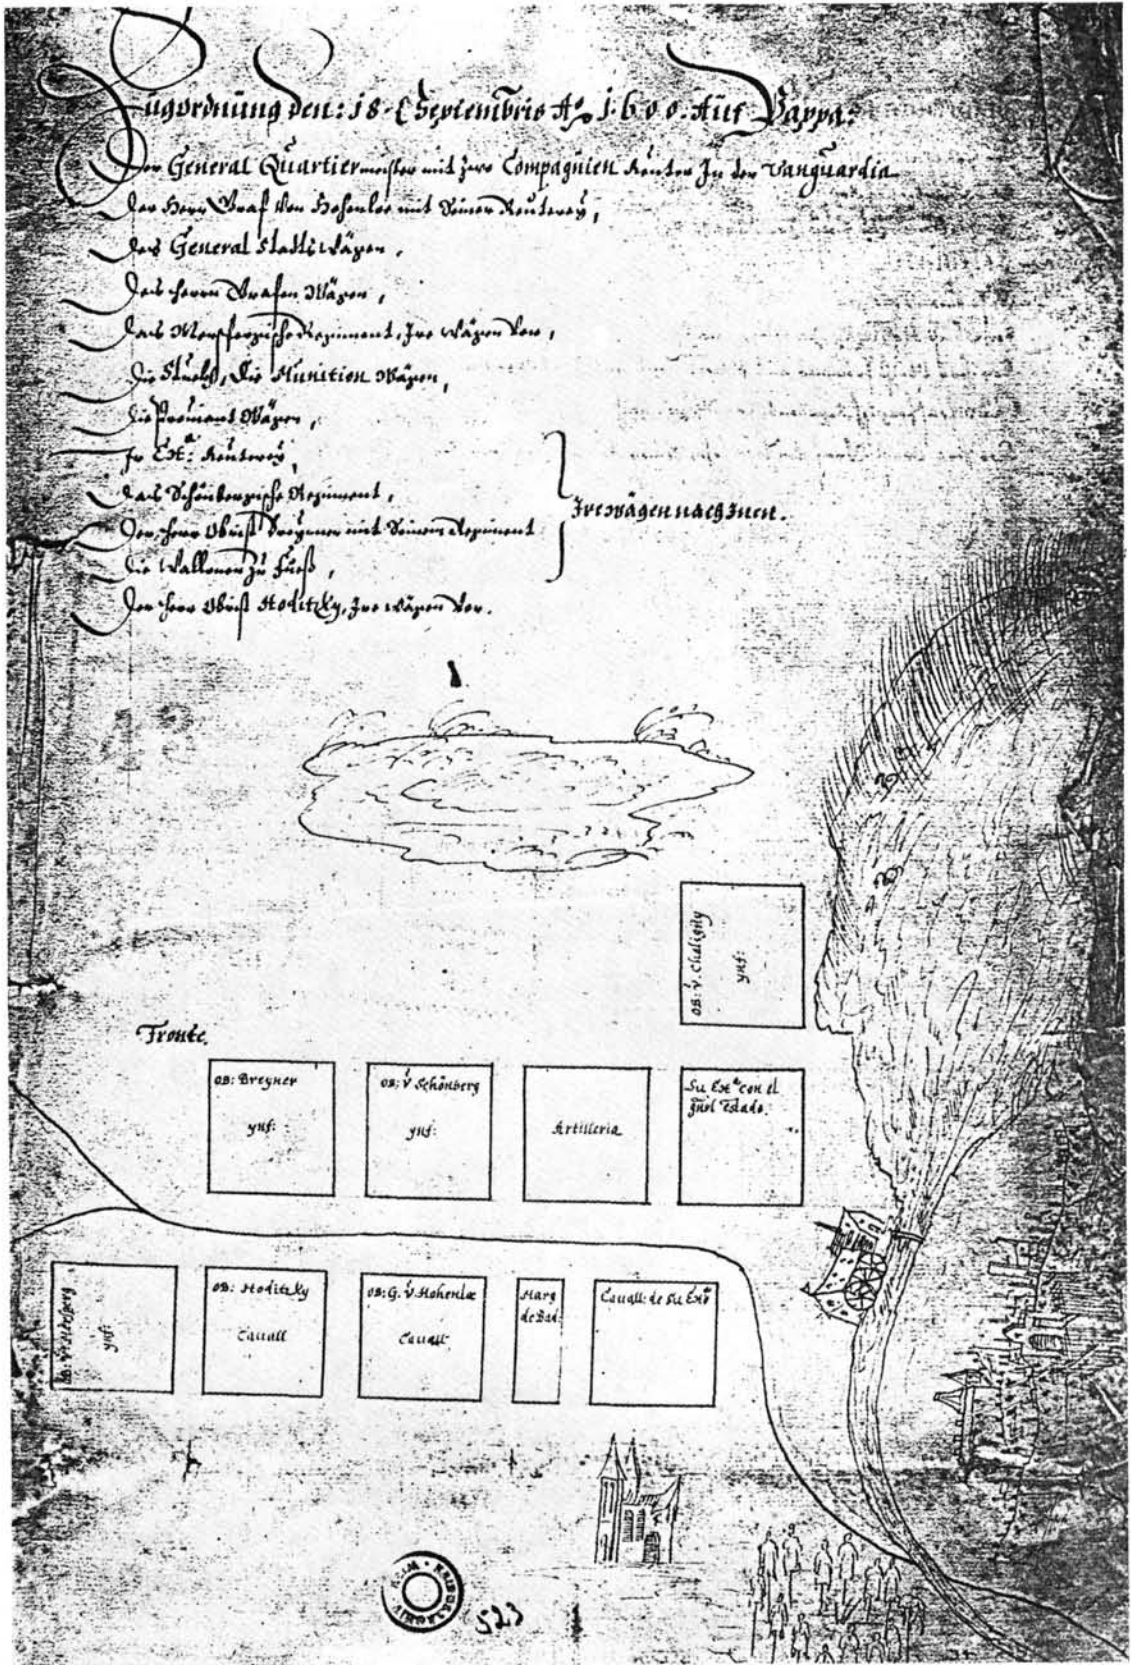 Zugordnung den: 18. Septembris Aō 1.6.0.0. Auf Pappa:
Der General Quartiermeister mit zwo Compagnien Reuter In der Vanguardia
Der Herr Graf von Hohenloe mit Seiner Reuterey,
Des General Stadts Wägen.
Des Herrn Grafen Wägen,
Das Regiment, Ire Wägen vor,
Die Stuckh, Die Munition Wägen,
Die Proviant Wägen,
Ir Exᵃ: Reuterey,
Das Schönbergische Regiment,
Der Herr Obrist Breyner mit Seinem Regiment
Die Wallonen zu Fueß,
Ire wägen nach Inen.
Der Herr Obrist Hoditzky, Ire Wägen vor.
OB: v. Chaligny
ynf:
Fronte.
OB: Breyner
ynf:
OB: v Schönberg
ynf:
Artilleria
Su Exᵃ con el
gñol Estado.
OB:
ynf:
OB: Hoditzky
Cauall
OB: G. v Hohenloe
Cauall
Marg
de Bad:
Cauall: de Su Exᵃ
KRIEGSARCHIV WIEN
523